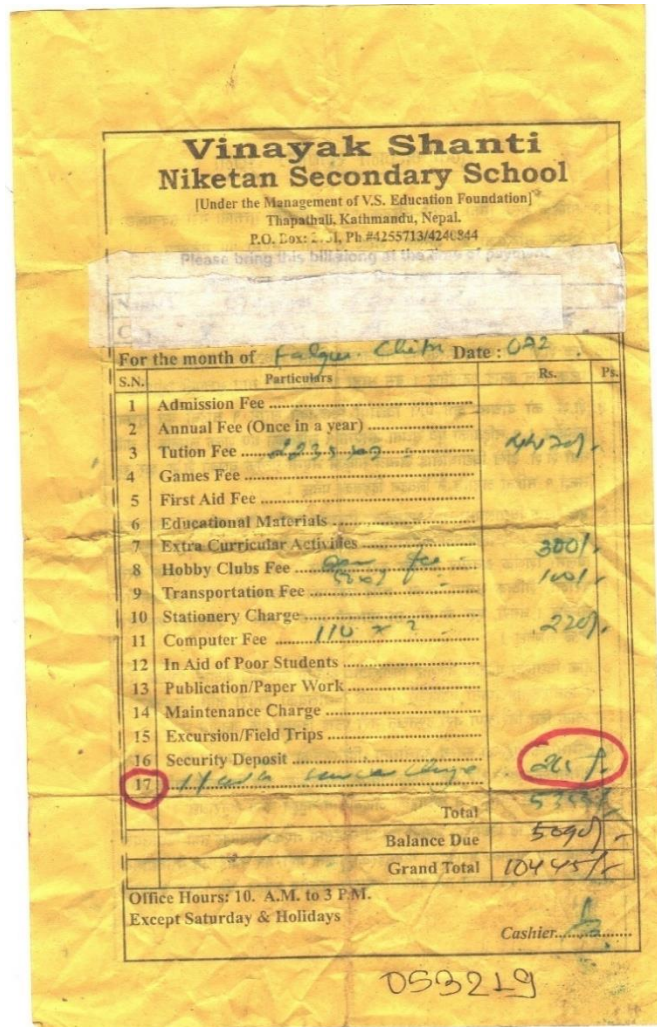 Vinayak Shanti
Niketan Secondary School
[Under the Management of V.S. Education Foundation]
Thapathali, Kathmandu, Nepal.
P.O. Box: Ph #4255713/4240844
Please bring this bill along at the time of payment
For the month of Date :
S.N. Particulars Rs. Ps.
1 Admission Fee
2 Annual Fee (Once in a year)
3 Tution Fee
4 Games Fee
5 First Aid Fee
6 Educational Materials
7 Extra Curricular Activities 300/-
8 Hobby Clubs Fee 100/-
9 Transportation Fee
10 Stationery Charge 220/-
11 Computer Fee 110 x 2
12 In Aid of Poor Students
13 Publication/Paper Work
14 Maintenance Charge
15 Excursion/Field Trips
16 Security Deposit
17
Total
Balance Due 5090/-
Grand Total 10445/-
Office Hours: 10. A.M. to 3 P.M.
Except Saturday & Holidays
Cashier
053219